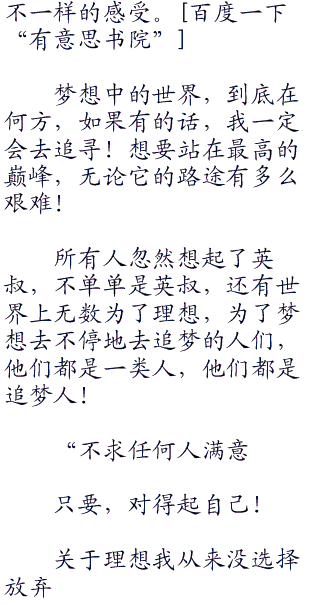 不一样的感受。[百度一下
“有意思书院”]
梦想中的世界，到底在
何方，如果有的话，我一定
会去追寻！想要站在最高的
巅峰，无论它的路途有多么
艰难！
所有人忽然想起了英
叔，不单单是英叔，还有世
界上无数为了理想，为了梦
想去不停地去追梦的人们，
他们都是一类人，他们都是
追梦人！
“不求任何人满意
只要，对得起自己！
关于理想我从来没选择
放弃